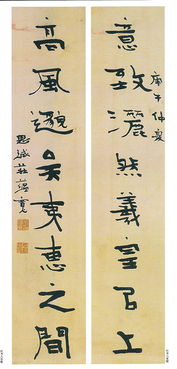 庚午仲夏
意致灑然羲皇㠯上
高風邈矣夷惠之間
思緘莊蘊寬